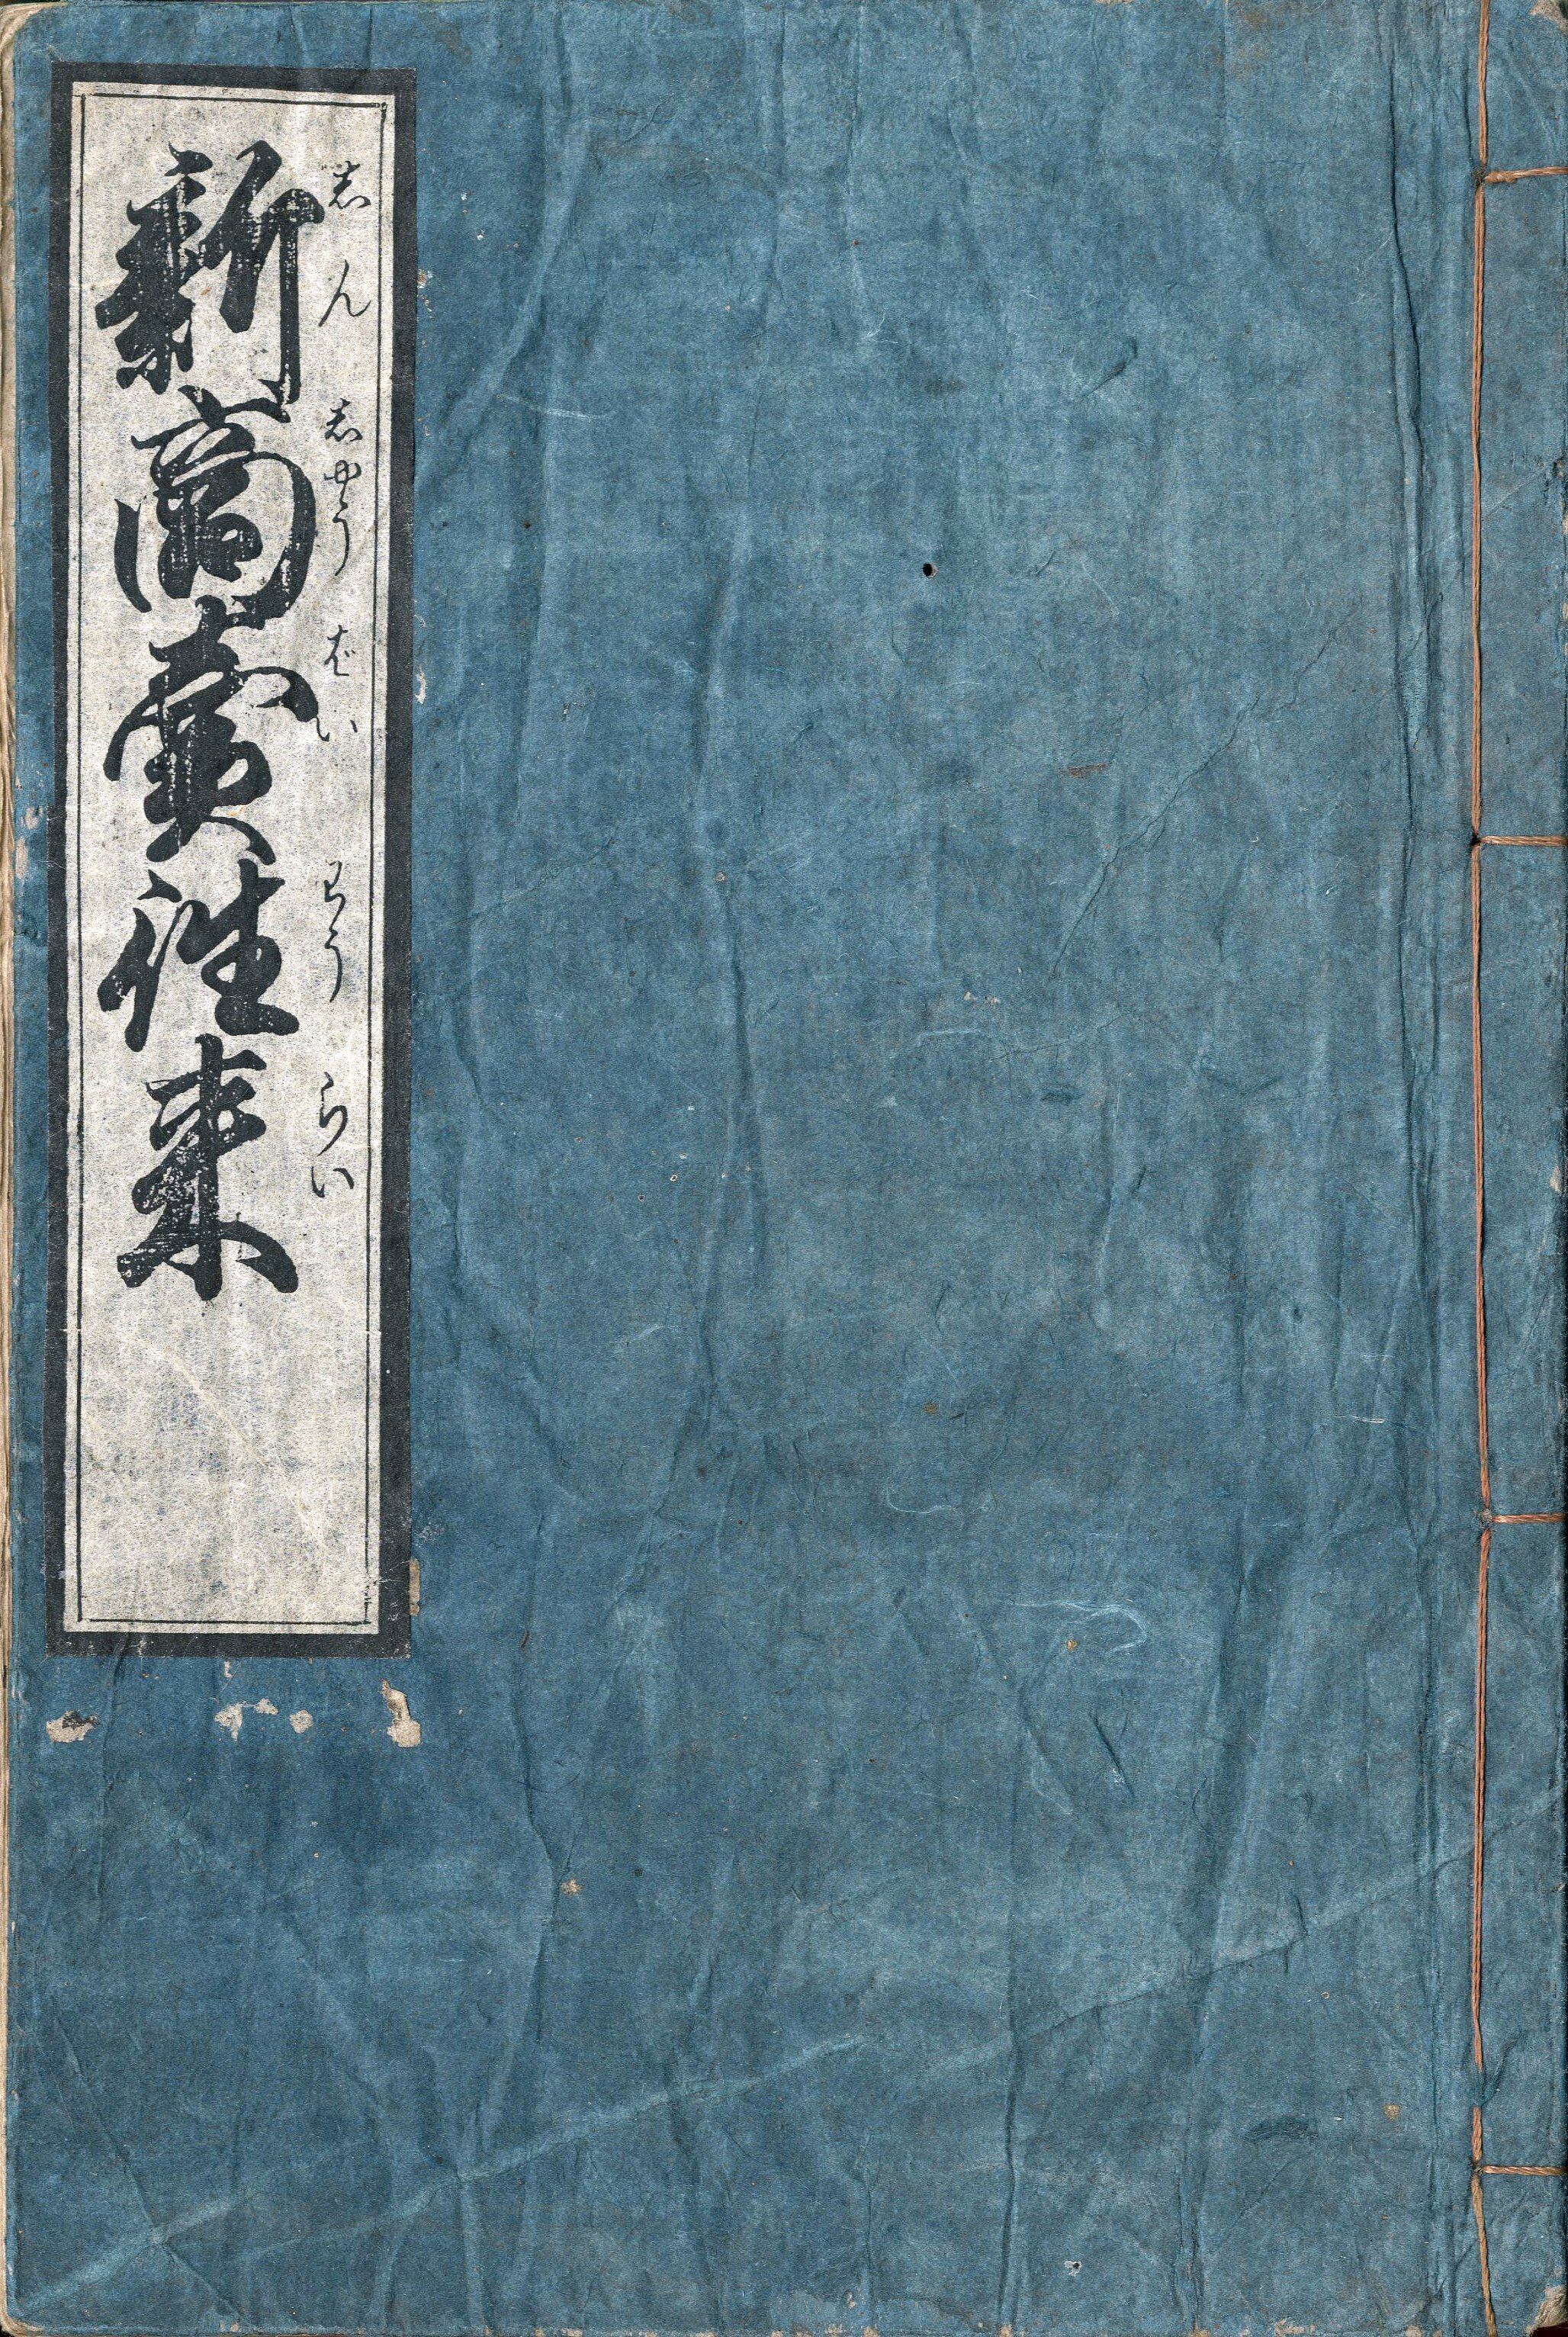 新商賣往来
志ん志やうばいわうらい